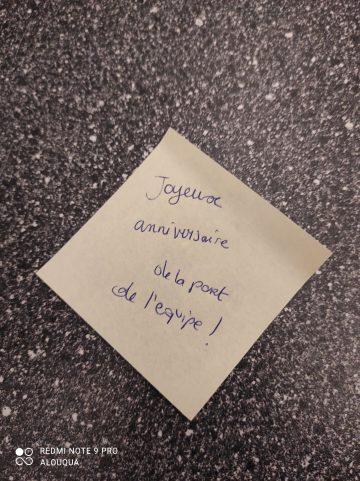 Joyeux
anniversaire
de la part
de l'equipe !
REDMI NOTE 9 PRO
ALOUQUA